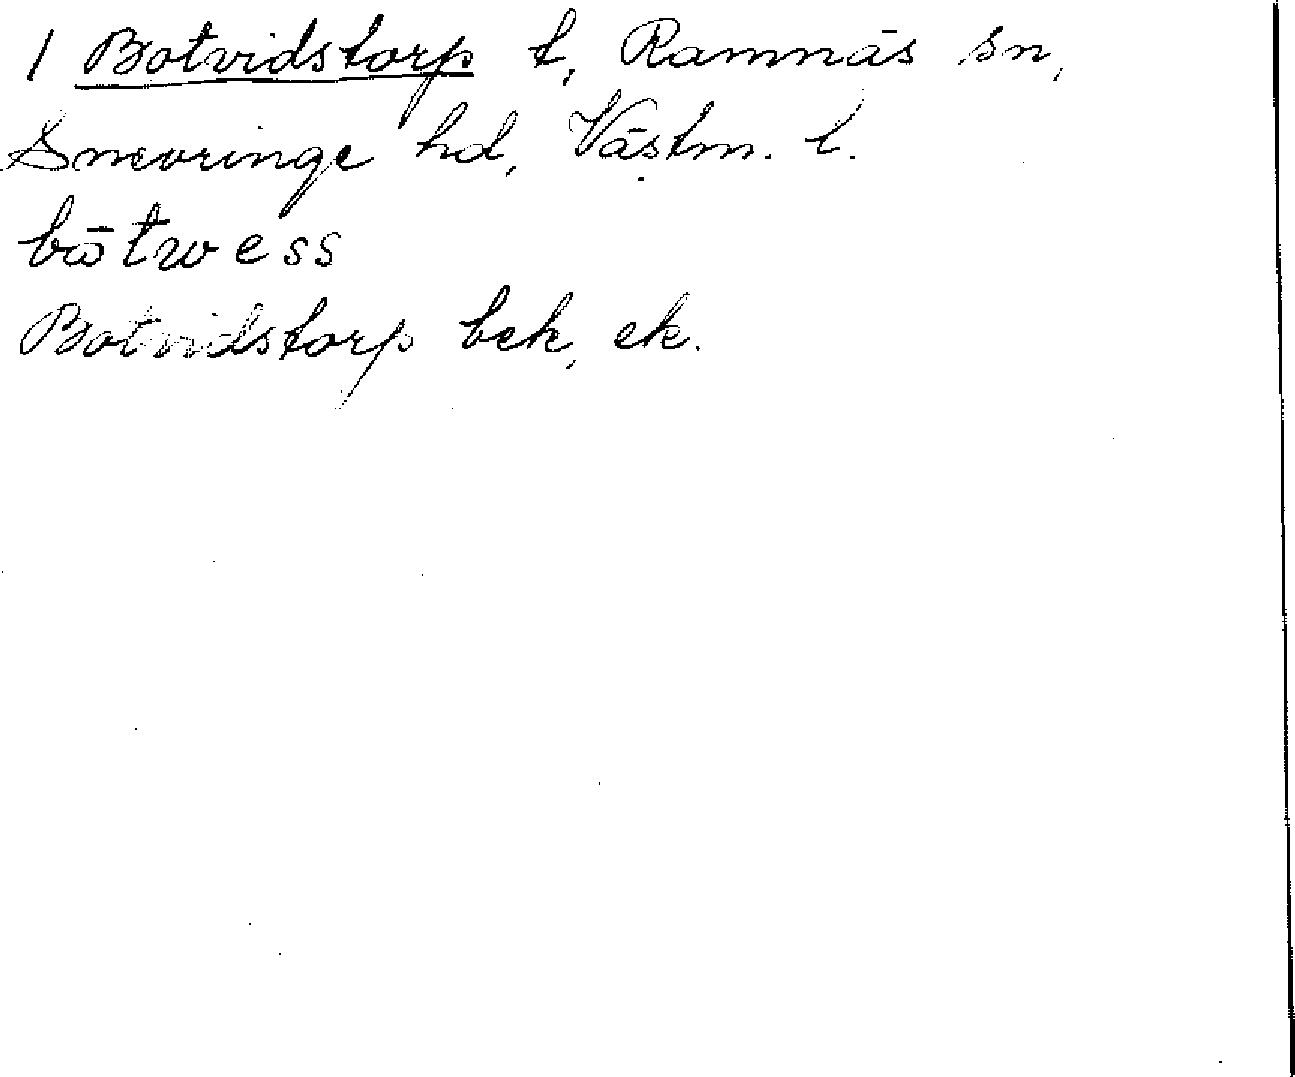 1 Botvidstorp t, Ramnäs sn,
Snevringe hd, Västm. l.
bōtwess
Botvidstorp bek, ek.